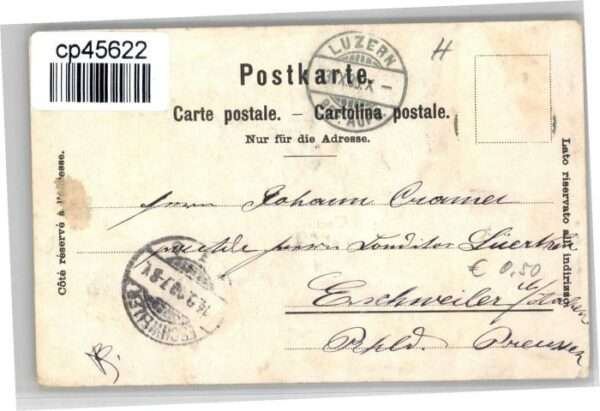 cp45622
LUZERN
H
Postkarte.
Carte postale. – Cartolina postale.
Nur für die Adresse.
Côté réservé à l'adresse.
Lato riservato all' indirizzo.
Herrn Johann Cramer
Herrn Conditor
€ 0,50
Eschweiler
Rhld. Preussen
ESCHWEILER